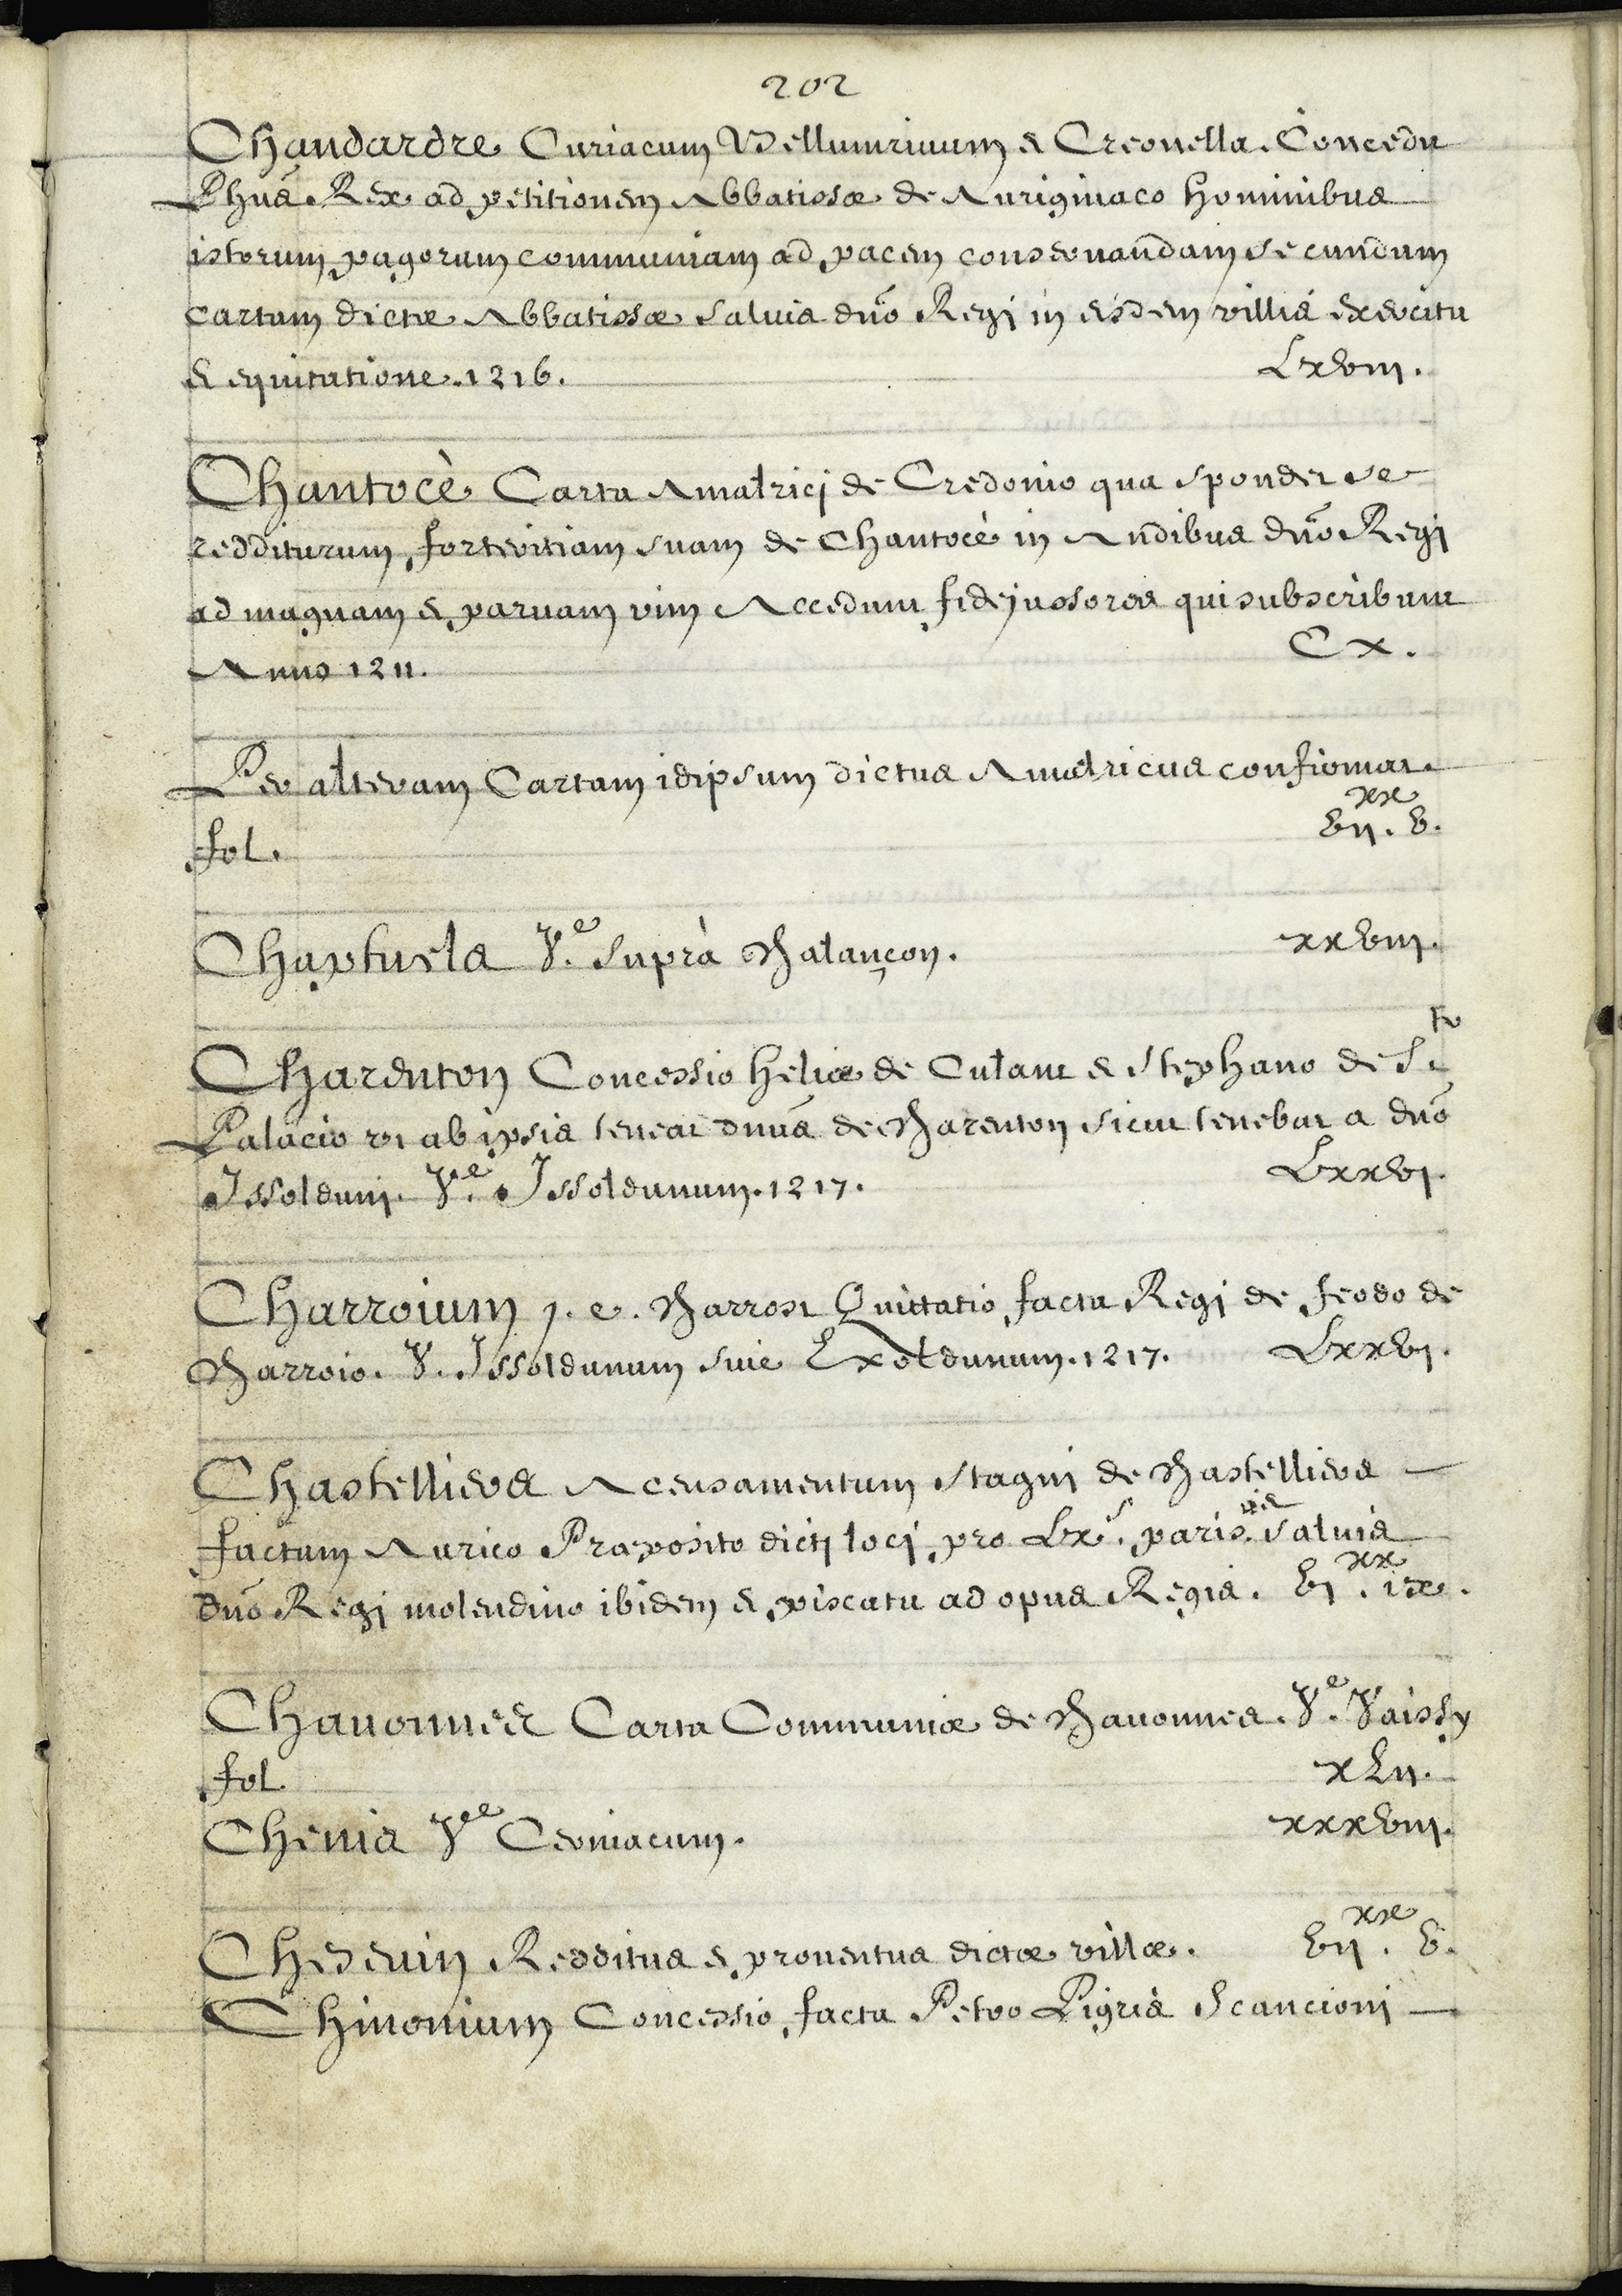 202
Chandardre Curiacum Vellumrivum & Creonella. Concedit
Phūs Rex ad petitionem Abbatissæ de Auriginaco hominibus
istorum pagorum communiam ad pacem conservandam secundum
cartam dictæ Abbatissæ salvis dño Regi in eisdem villis exercitu
& equitatione. 1216. Lxviii.
Chantocè Carta Amalrici de Credonio qua spondet se
redditurum forteritiam suam de Chantocè in Andibus dño Regi
ad magnam & parvam vim Accedunt fidejussores qui subscribunt
Anno 1211. Cx.
Per alteram Cartam idipsum dictus Amalricus confirmat.
fol. vii.xx v.
Chaptuela V.e suprà Chalançon. xxviii.
Charenton Concessio heliæ de Culant & Stephano de S.to
Palacio vt ab ipsis teneat dnūs de Charenton sicut tenebat a dño
Issolduni. V.e Issoldunum. 1217. Lxxvi.
Charroium j. e. Charrost Quittatio facta Regi de feodo de
Charroio. V. Issoldunum sive Exoldunum. 1217. Lxxvi.
Chastelliers Acensamentum stagni de Chastelliers
factum Aurico Præposito dicti loci pro Lx.s paris.iis salvis
dño Regi molendino ibidem & piscatu ad opus Regis. vi.xx ix.
Chavonnes Carta Communiæ de Chavonnes. V.e Vaissy
fol. xLii.
Chenis V.ee Cerniacum. xxxviii.
Chesevin Redditus & proventus dictæ villæ. vii.xx v.
Chinonium Concessio facta Petro Pigris Scancioni